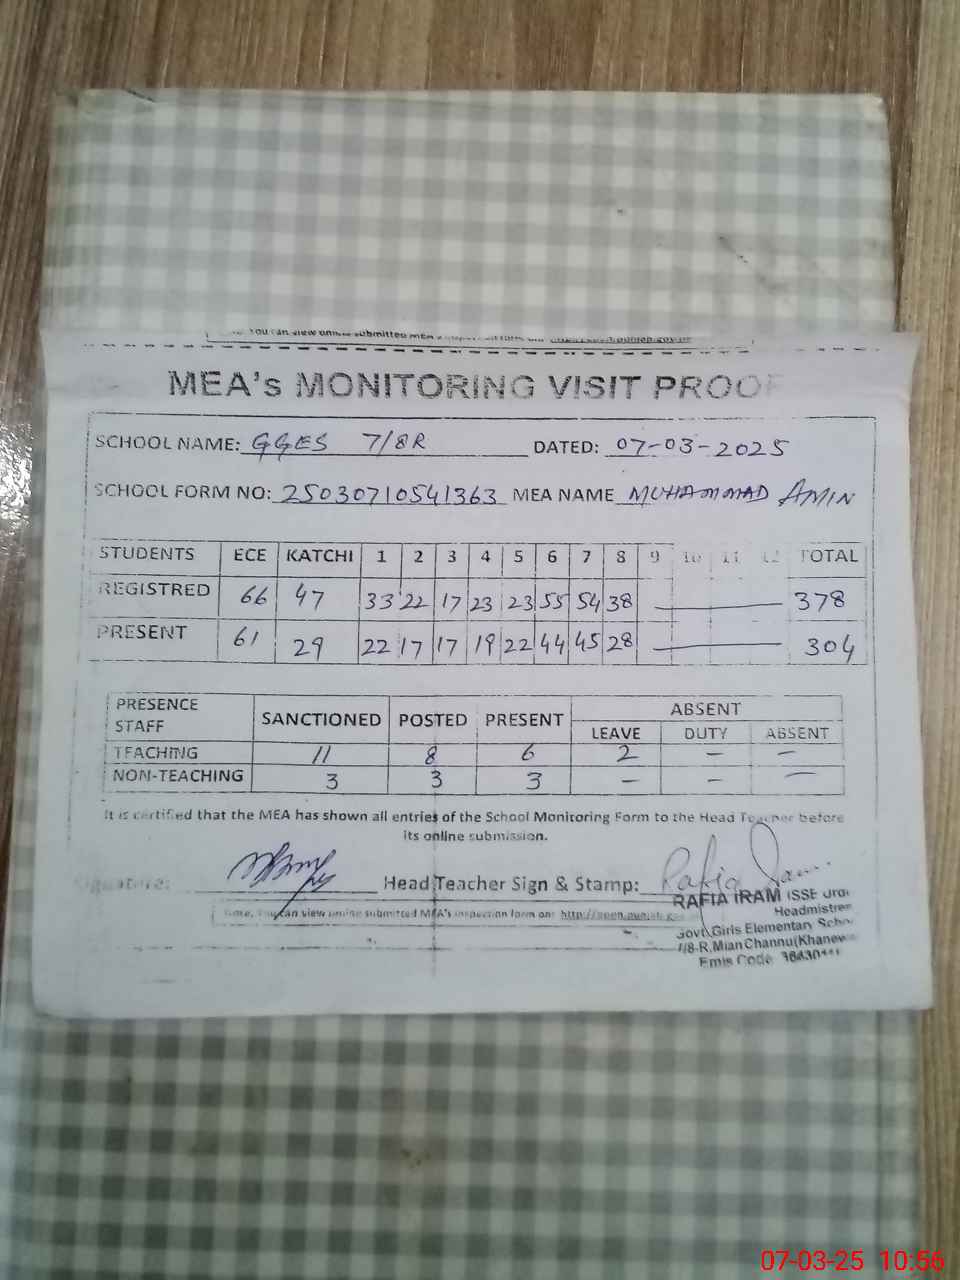 You can view online submitted MEA's
MEA's MONITORING VISIT PROOF
SCHOOL NAME: GGES 7/8R DATED: 07-03-2025
SCHOOL FORM NO: 25030710541363 MEA NAME MUHAMMAD AMIN
STUDENTS ECE KATCHI 1 2 3 4 5 6 7 8 9 10 11 12 TOTAL
REGISTRED 66 47 33 22 17 23 23 55 54 38 — 378
PRESENT 61 29 22 17 17 19 22 44 45 28 — 304
PRESENCE STAFF SANCTIONED POSTED PRESENT ABSENT
LEAVE DUTY ABSENT
TEACHING 11 8 6 2 — —
NON-TEACHING 3 3 3 — — —
It is certified that the MEA has shown all entries of the School Monitoring Form to the Head Teacher before
its online submission.
Signature: Head Teacher Sign & Stamp: Rafia Iram
RAFIA IRAM (SSE
Headmistres
Govt. Girls Elementary Schoo
7/8-R, Mian Channu (Khanew
Emis Code
Note, You can view online submitted MEA's inspection form on: http://open.punjab.gov
07-03-25 10:56